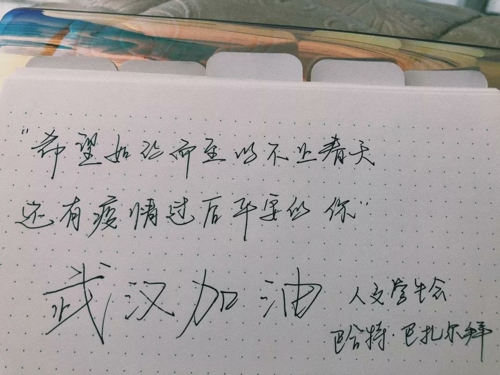 "希望如约而至的不止春天
还有疫情过后平安的你"
武汉加油
人文学生会
巴合特·巴扎尔拜